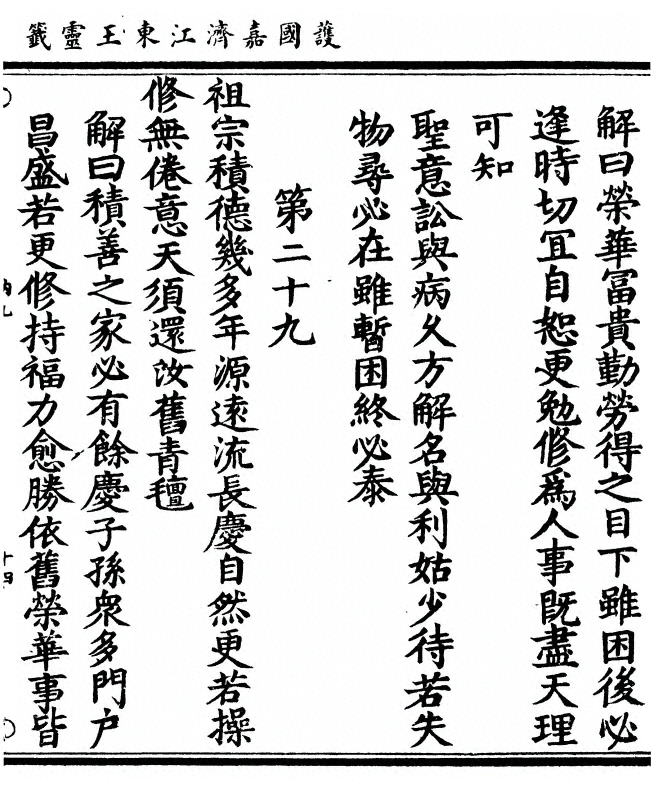 護國嘉濟江東王靈籤
解曰榮華冨貴勤勞得之目下雖困後必
逢時切冝自恕更勉修爲人事既盡天理
可知
聖意訟與病久方解名與利姑少待若失
物尋必在雖暫困終必泰
第二十九
祖宗積德幾多年源遠流長慶自然更若操
修無倦意天須還汝舊青氊
解曰積善之家必有餘慶子孫衆多門户
昌盛若更修持福力愈勝依舊榮華事皆